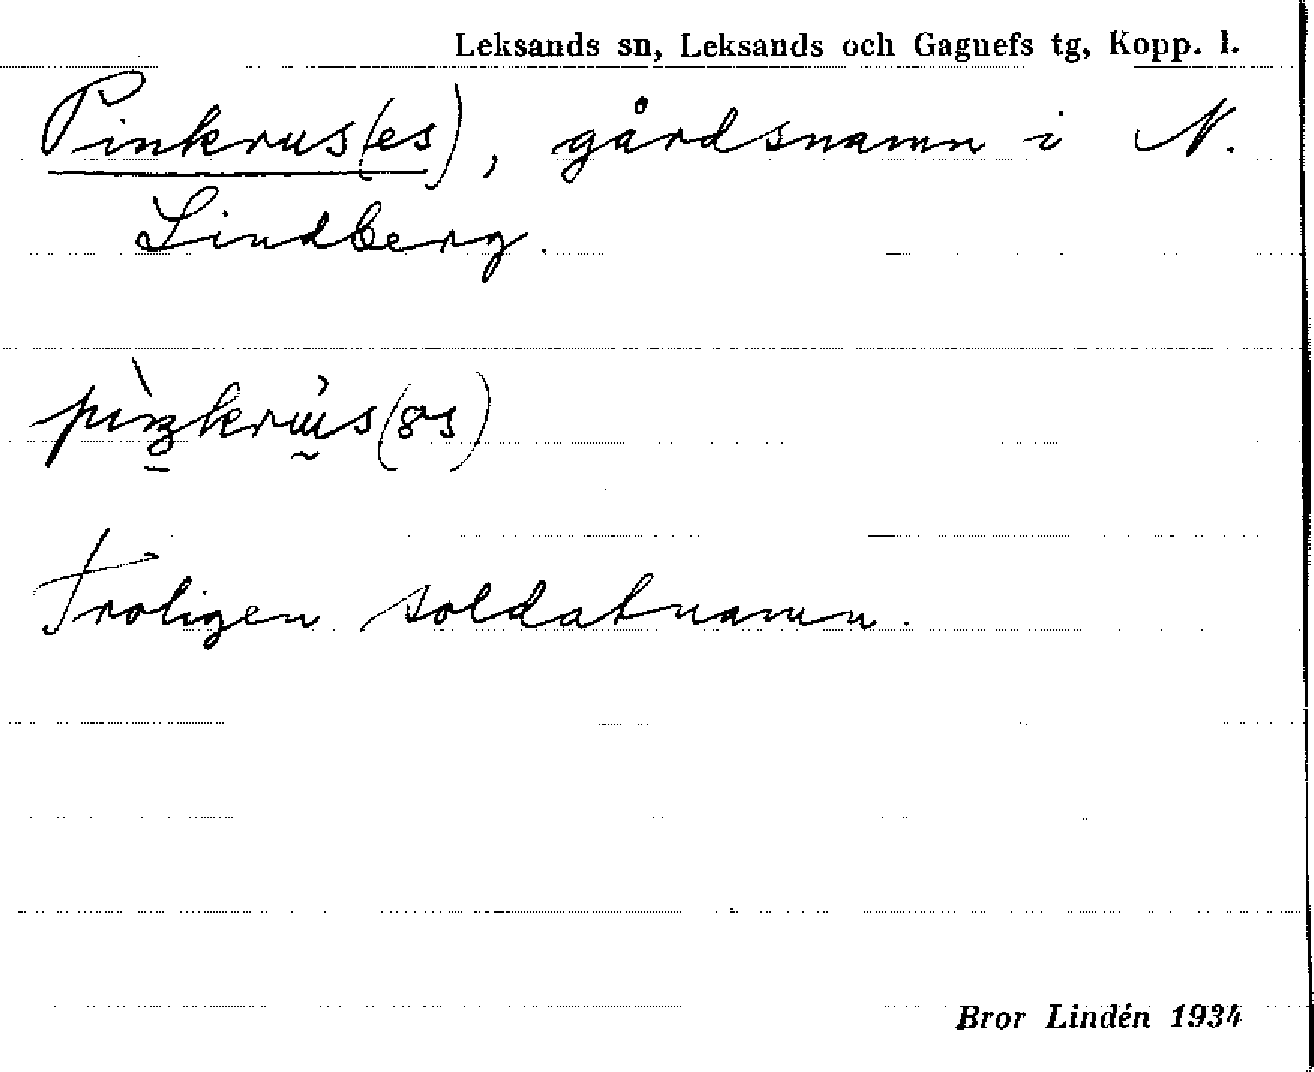 Leksands sn, Leksands och Gagnefs tg, Kopp. l.
Pinkrus(es), gårdsnamn i N.
Lindberg.
Troligen soldatnamn.
Bror Lindén 1934